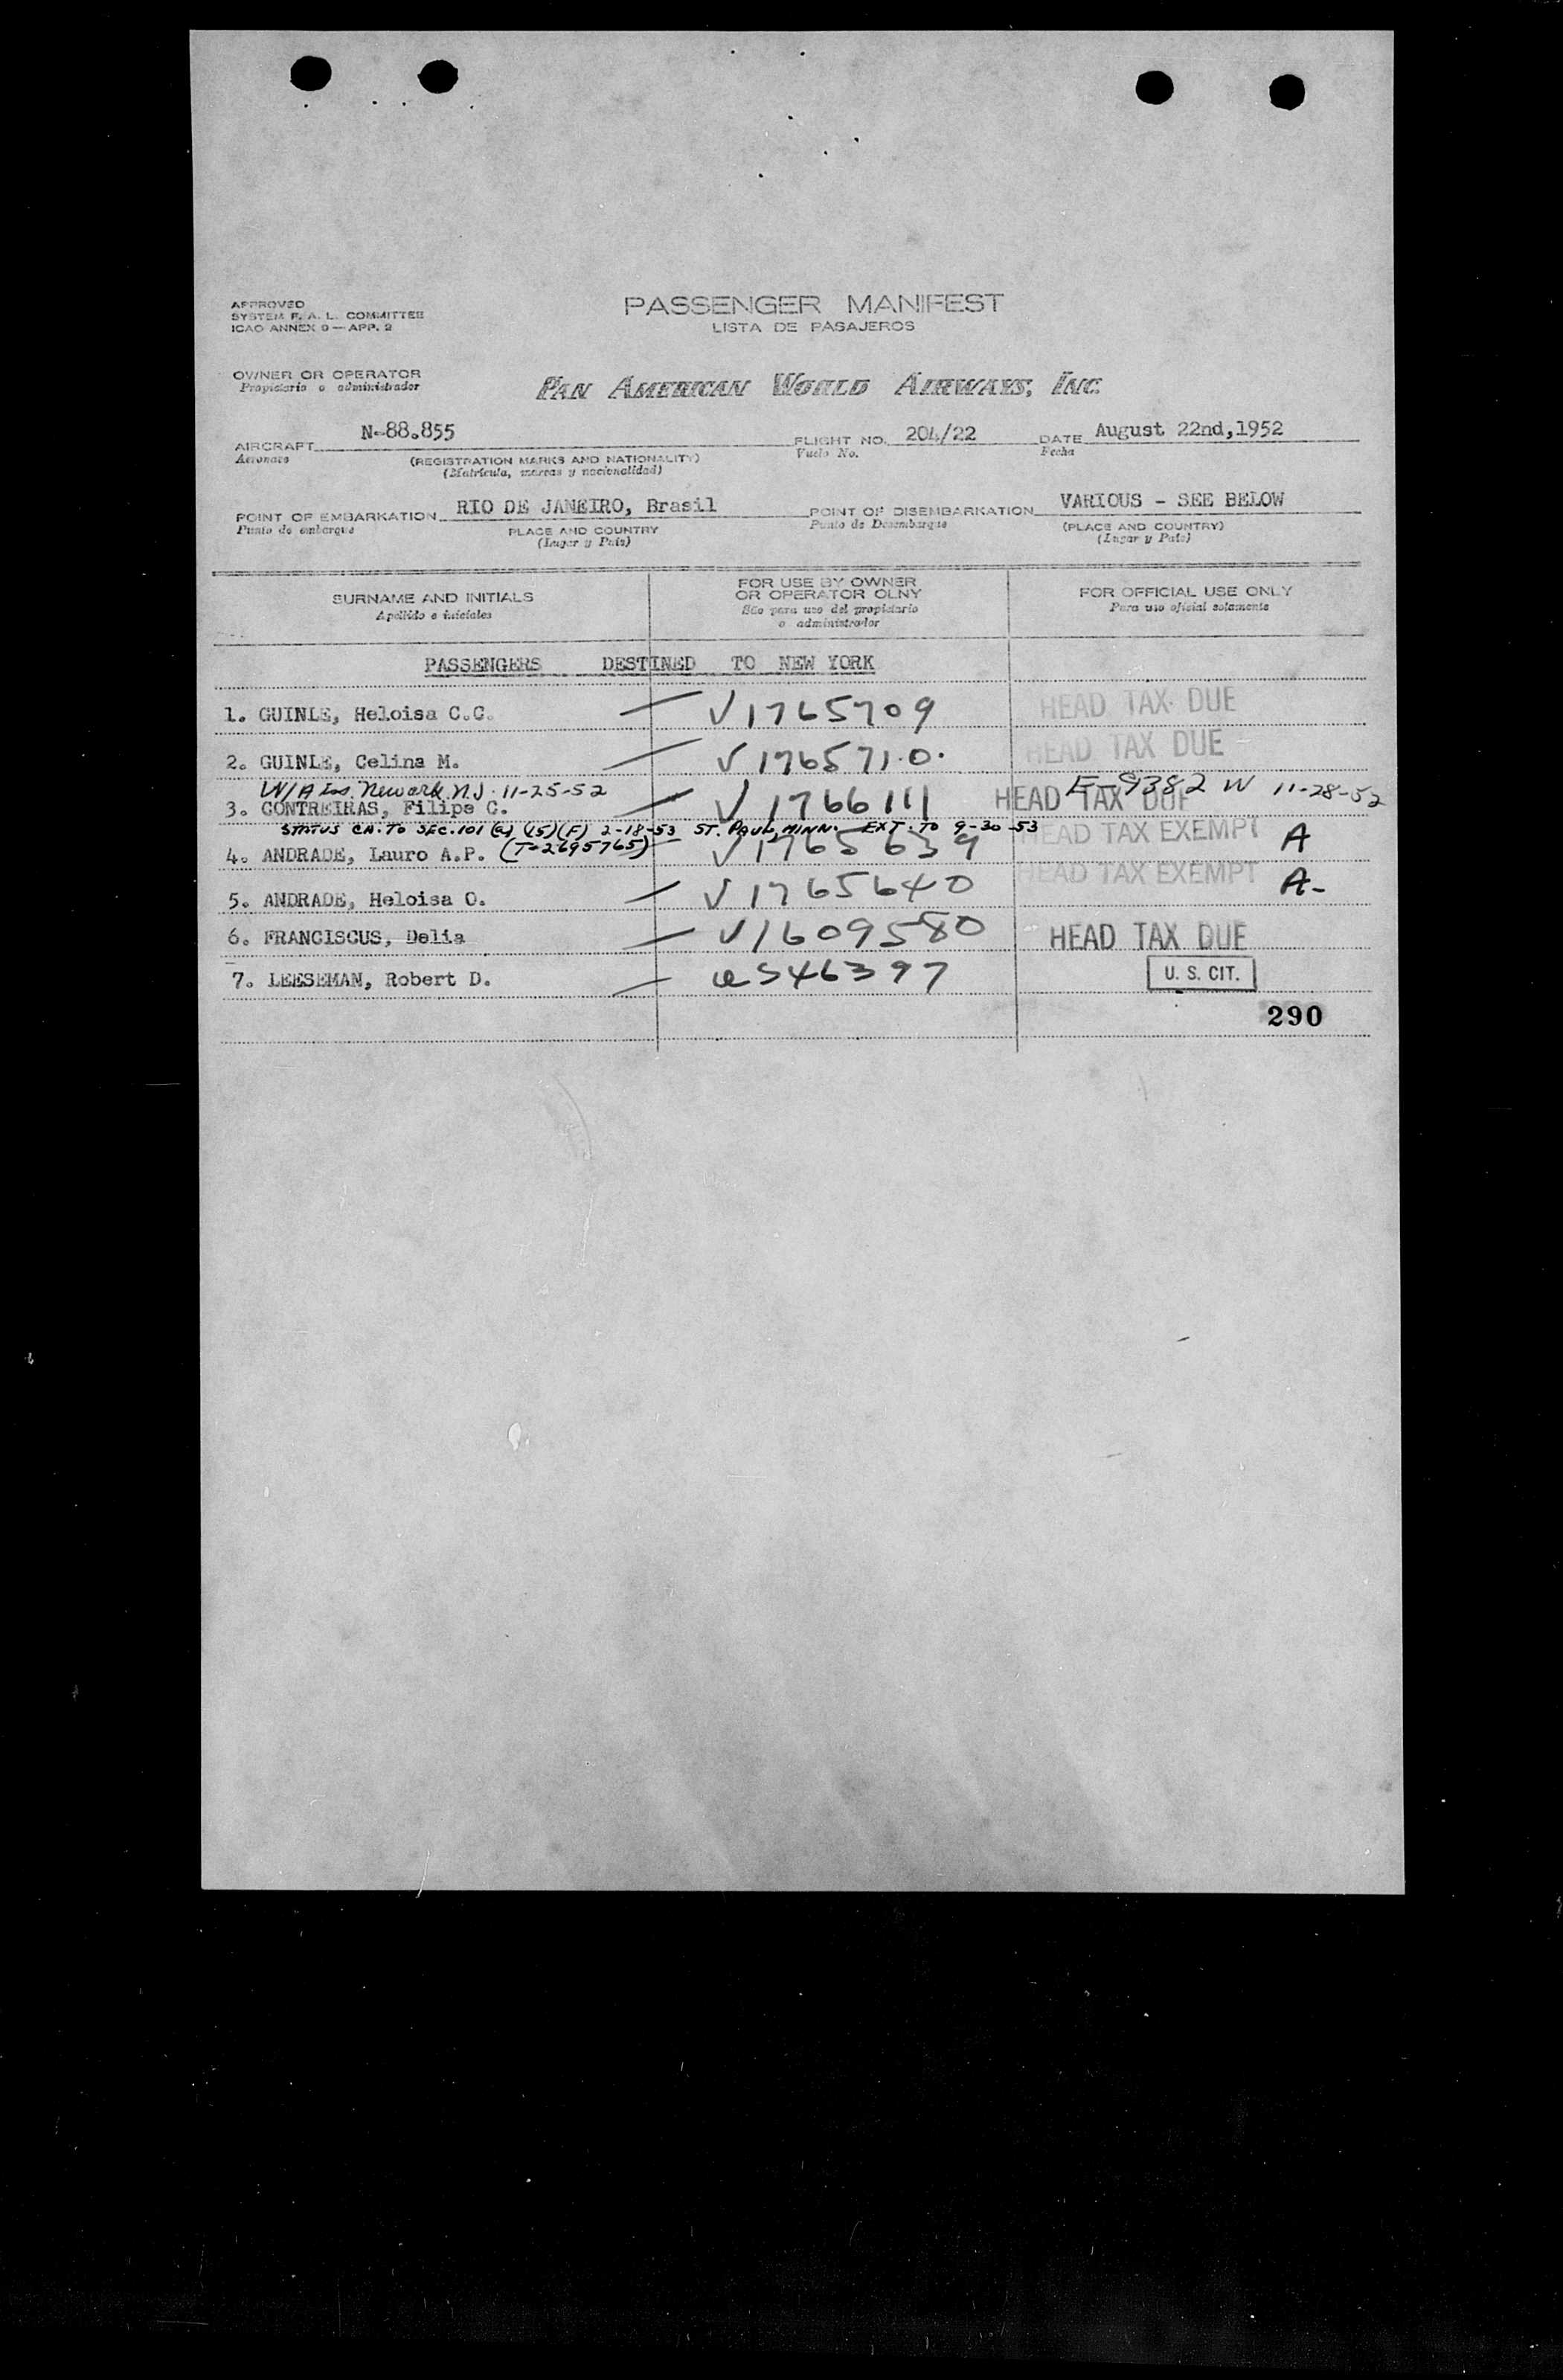 APPROVED
SYSTEM F. A. L. COMMITTEE
ICAO ANNEX 9 — APP. 2
PASSENGER MANIFEST
LISTA DE PASAJEROS
OWNER OR OPERATOR
Propietario o administrador
PAN AMERICAN WORLD AIRWAYS, INC.
AIRCRAFT N-88.855 FLIGHT NO. 204/22 DATE August 22nd,1952
Aeronave (REGISTRATION MARKS AND NATIONALITY) Vuelo No. Fecha
(Matrícula, marcas y nacionalidad)
POINT OF EMBARKATION RIO DE JANEIRO, Brasil POINT OF DISEMBARKATION VARIOUS - SEE BELOW
Punto de embarque PLACE AND COUNTRY Punto de Desembarque (PLACE AND COUNTRY)
(Lugar y País) (Lugar y País)
SURNAME AND INITIALS
Apellido e iniciales
FOR USE BY OWNER
OR OPERATOR OLNY
Sólo para uso del propietario
o administrador
FOR OFFICIAL USE ONLY
Para uso oficial solamente
PASSENGERS DESTINED TO NEW YORK
1. GUINLE, Heloisa C.C. — V1765709 HEAD TAX DUE
2. GUINLE, Celina M. — V1765710. HEAD TAX DUE
W/A Newark N.J. 11-25-52 E-9382 W 11-28-52
3. CONTREIRAS, Filipe C. — V1766111 HEAD TAX DUE
STATUS CH. TO SEC. 101 (a) (15) (F) 2-18-53 ST. PAUL, MINN. EXT. TO 9-30-53
4. ANDRADE, Lauro A.P. (T-2695765) — V1765639 HEAD TAX EXEMPT A
5. ANDRADE, Heloisa O. — V1765640 HEAD TAX EXEMPT A-
6. FRANCISCUS, Delia — V1609580 HEAD TAX DUE
7. LEESEMAN, Robert D. — 546397 U. S. CIT.
290